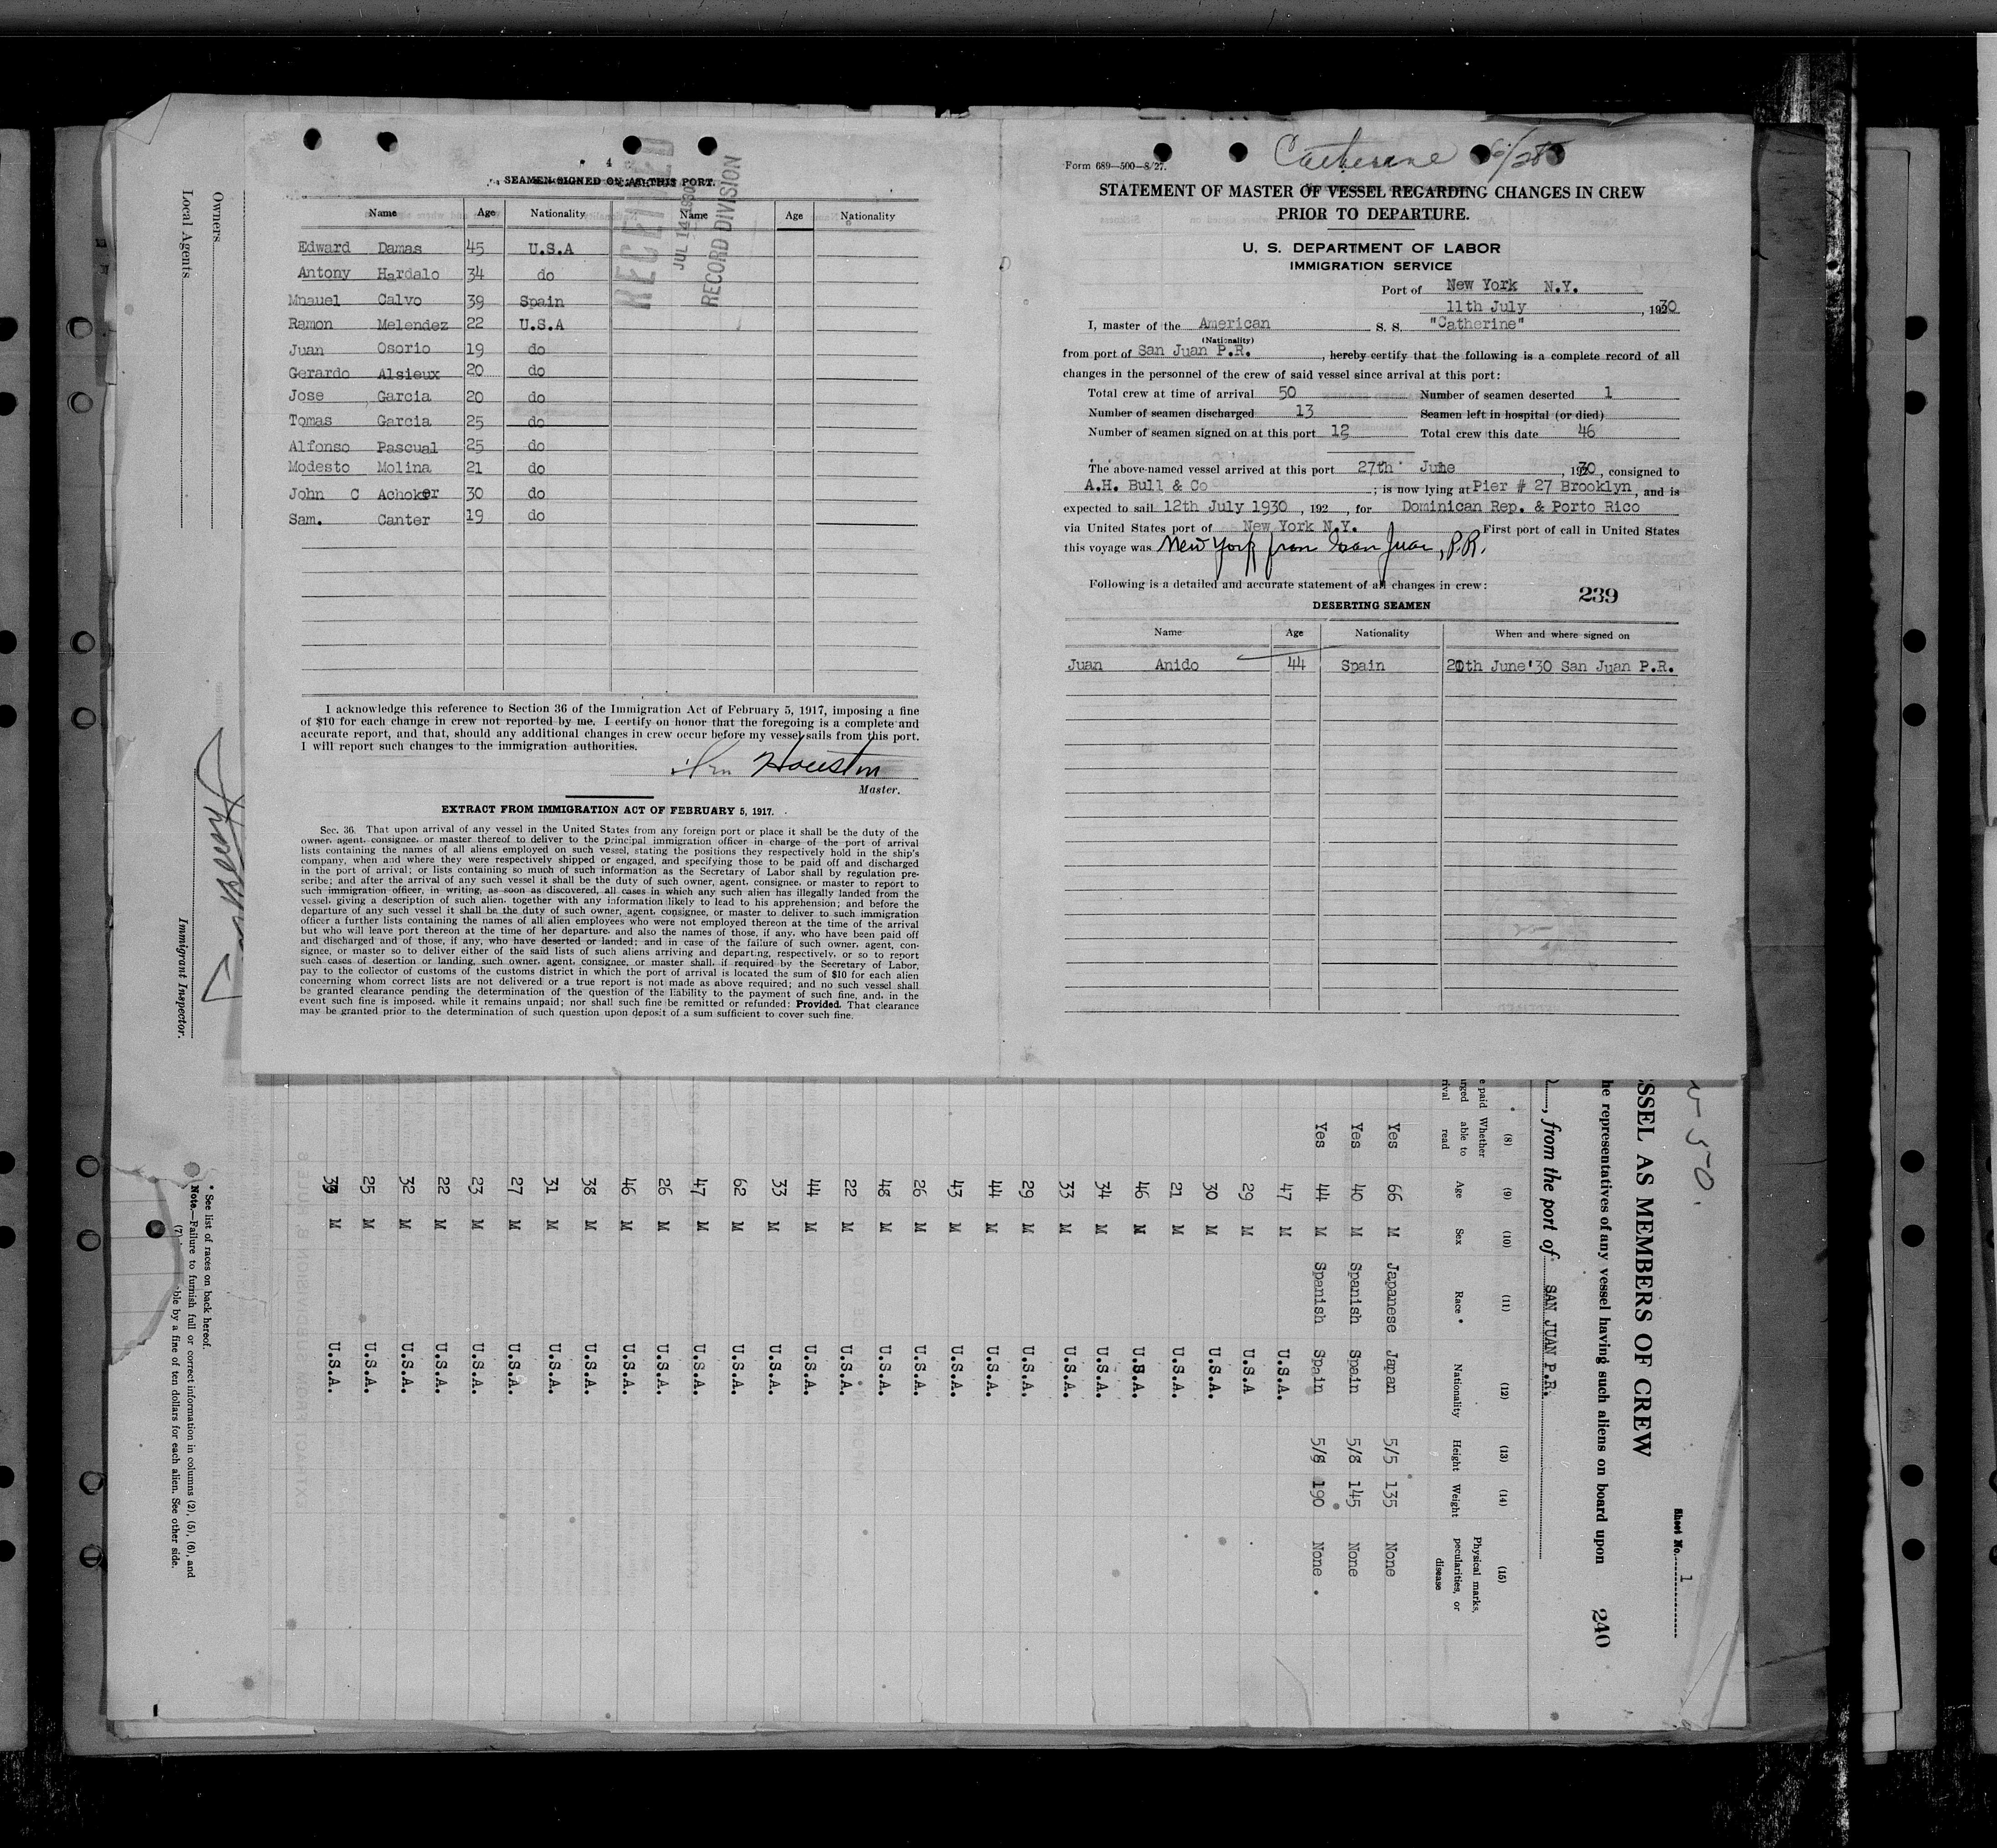 4
SEAMEN SIGNED ON AT THIS PORT.
Name Age Nationality Name Age Nationality
Edward Damas 45 U.S.A
Antony Hardalo 34 do
Mnauel Calvo 39 Spain
Ramon Melendez 22 U.S.A
Juan Osorio 19 do
Gerardo Alsieux 20 do
Jose Garcia 20 do
Tomas Garcia 25 do
Alfonso Pascual 25 do
Modesto Molina 21 do
John C Achoker 30 do
Sam. Canter 19 do
RECEIVED
JUL 14 1930
RECORD DIVISION
I acknowledge this reference to Section 36 of the Immigration Act of February 5, 1917, imposing a fine
of $10 for each change in crew not reported by me. I certify on honor that the foregoing is a complete and
accurate report, and that, should any additional changes in crew occur before my vessel sails from this port.
I will report such changes to the immigration authorities.
Houston
Master.
EXTRACT FROM IMMIGRATION ACT OF FEBRUARY 5, 1917.
Sec. 36. That upon arrival of any vessel in the United States from any foreign port or place it shall be the duty of the
owner, agent, consignee, or master thereof to deliver to the principal immigration officer in charge of the port of arrival
lists containing the names of all aliens employed on such vessel, stating the positions they respectively hold in the ship's
company, when and where they were respectively shipped or engaged, and specifying those to be paid off and discharged
in the port of arrival; or lists containing so much of such information as the Secretary of Labor shall by regulation pre-
scribe; and after the arrival of any such vessel it shall be the duty of such owner, agent, consignee, or master to report to
such immigration officer, in writing, as soon as discovered, all cases in which any such alien has illegally landed from the
vessel, giving a description of such alien, together with any information likely to lead to his apprehension; and before the
departure of any such vessel it shall be the duty of such owner, agent, consignee, or master to deliver to such immigration
officer a further lists containing the names of all alien employees who were not employed thereon at the time of the arrival
but who will leave port thereon at the time of her departure, and also the names of those, if any, who have been paid off
and discharged and of those, if any, who have deserted or landed; and in case of the failure of such owner, agent, con-
signee, or master so to deliver either of the said lists of such aliens arriving and departing, respectively, or so to report
such cases of desertion or landing, such owner, agent, consignee, or master shall, if required by the Secretary of Labor,
pay to the collector of customs of the customs district in which the port of arrival is located the sum of $10 for each alien
concerning whom correct lists are not delivered or a true report is not made as above required; and no such vessel shall
be granted clearance pending the determination of the question of the liability to the payment of such fine, and, in the
event such fine is imposed, while it remains unpaid; nor shall such fine be remitted or refunded: Provided, That clearance
may be granted prior to the determination of such question upon deposit of a sum sufficient to cover such fine.
Catherine 6/28
Form 689—500—8/27.
STATEMENT OF MASTER OF VESSEL REGARDING CHANGES IN CREW
PRIOR TO DEPARTURE.
U. S. DEPARTMENT OF LABOR
IMMIGRATION SERVICE
Port of New York N.Y.
11th July , 1930
I, master of the American S. S. "Catherine"
(Nationality)
from port of San Juan P.R. , hereby certify that the following is a complete record of all
changes in the personnel of the crew of said vessel since arrival at this port:
Total crew at time of arrival 50 Number of seamen deserted 1
Number of seamen discharged 13 Seamen left in hospital (or died)
Number of seamen signed on at this port 12 Total crew this date 46
The above-named vessel arrived at this port 27th June , 1930, consigned to
A.H. Bull & Co ; is now lying at Pier # 27 Brooklyn, and is
expected to sail 12th July 1930 , 192 , for Dominican Rep. & Porto Rico
via United States port of New York N.Y. First port of call in United States
this voyage was New York from San Juan, P.R.
Following is a detailed and accurate statement of all changes in crew:
239
DESERTING SEAMEN
Name Age Nationality When and where signed on
Juan Anido 44 Spain 20th June'30 San Juan P.R.
Owners
Local Agents
Immigrant Inspector.
* See list of races on back hereof.
Note.—Failure to furnish full or correct information in columns (2), (5), (6), and
(7) ble by a fine of ten dollars for each alien. See other side.
Sheet No. 1
SSEL AS MEMBERS OF CREW
he representatives of any vessel having such aliens on board upon 240
, from the port of SAN JUAN P.R.
(8) (9) (10) (11) (12) (13) (14) (15)
Whether able to read Age Sex Race * Nationality Height Weight Physical marks, pecularities, or disease
Yes 66 M Japanese Japan 5/5 135 None
Yes 40 M Spanish Spain 5/8 145 None
Yes 44 M Spanish Spain 5/8 190 None
47 M U.S.A.
29 M U.S.A
30 M U.S.A.
21 M U.S.A.
46 M U.S.A.
34 M U.S.A.
33 M U.S.A.
29 M U.S.A.
44 M U.S.A.
43 M U.S.A.
26 M U.S.A.
48 M U.S.A.
22 M U.S.A.
44 M U.S.A.
33 M U.S.A.
62 M U.S.A.
47 M U.S.A.
26 M U.S.A.
46 M U.S.A.
38 M U.S.A.
31 M U.S.A.
27 M U.S.A.
23 M U.S.A.
22 M U.S.A.
32 M U.S.A.
25 M U.S.A.
M U.S.A.